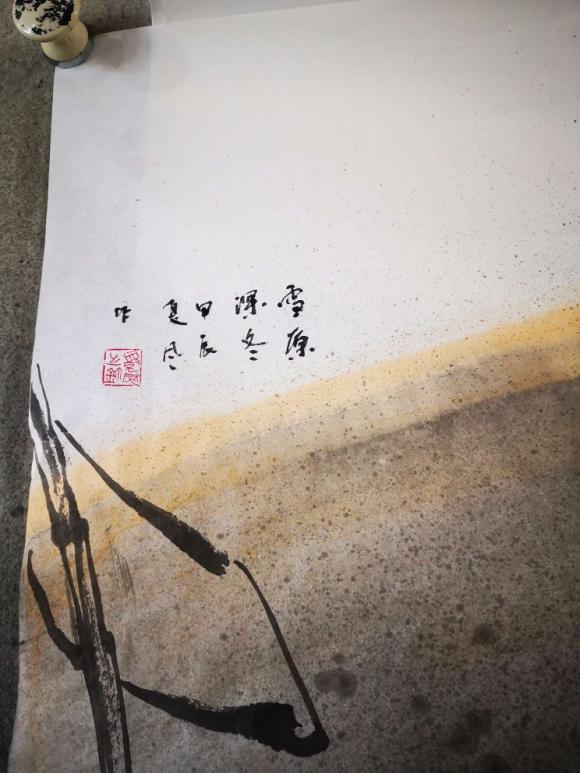 雪原
深冬
甲辰
夏风
作